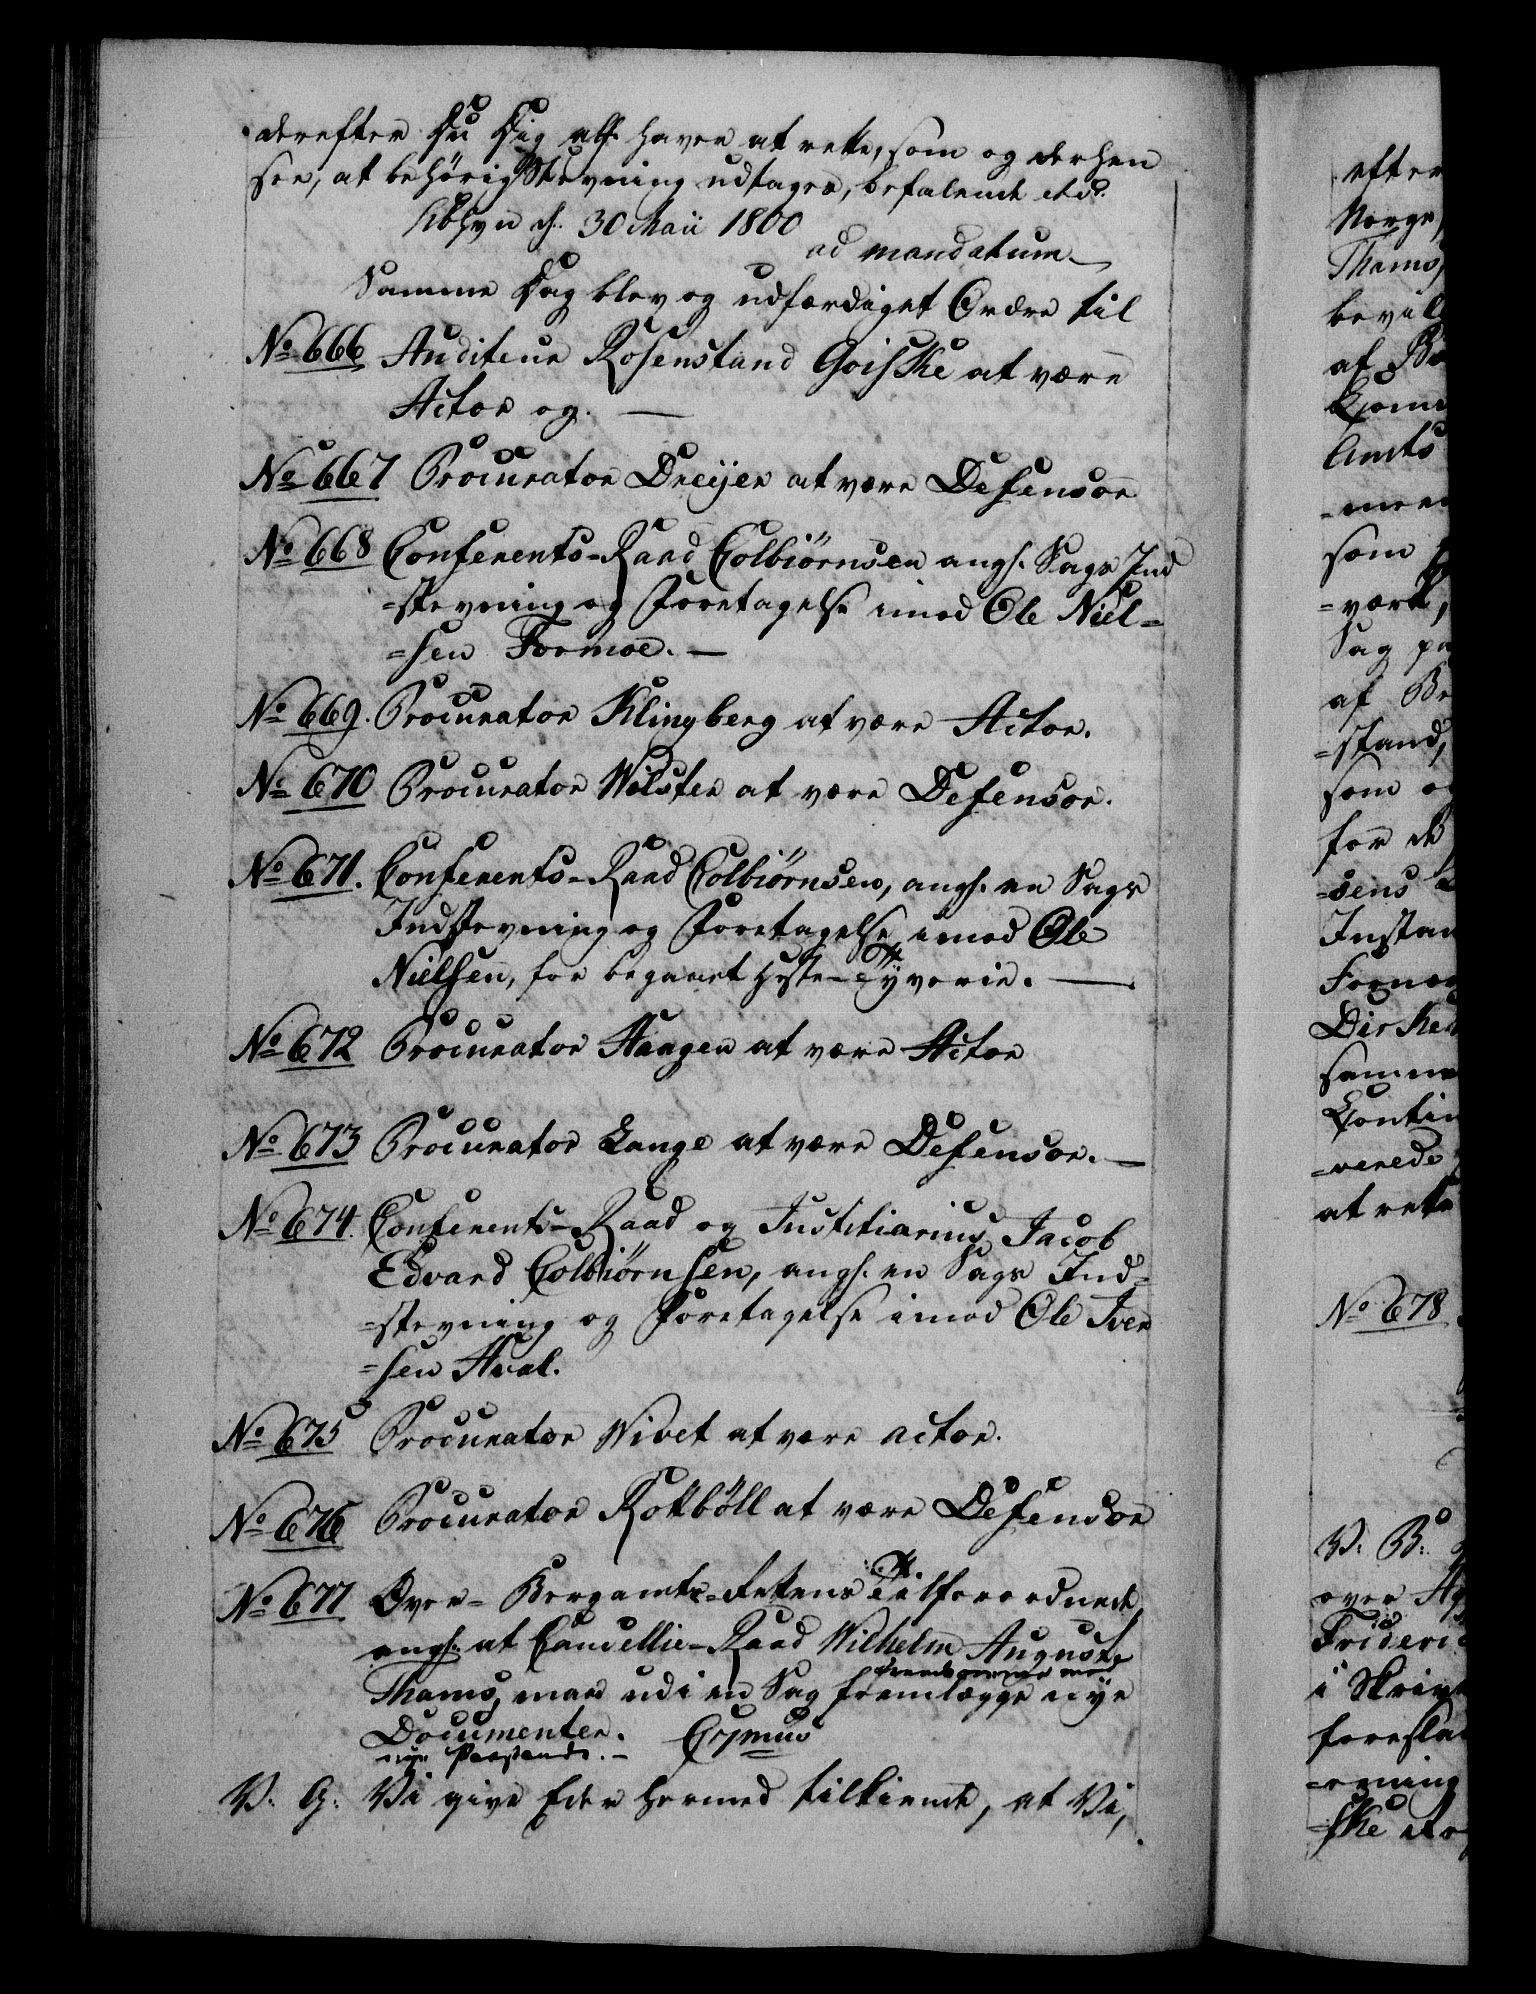 derefter Du Dig alls. haver at rette, som og derhen
see, at behørig Stevning udtages, befalende etc.
Kbhvn d. 30 Maii 1800
ad mandatum
Samme Dag blev og udfærdiget Ordre til
No 666 Auditeur Rosenstand Goiske at være
Actor og. —
No 667 Procurator Dreijer at være Defensor
No 668 Conferents-Raad Colbiørnsen angl. Sags Ind
=stevning og Foretagelse imod Ole Niel=
=sen Formoe. —
No 669. Procurator Klingberg at være Actor.
No 670 Procurator Wilster at være Defensor.
No 671. Conferents-Raad Colbiørnsen, angl. en Sags
Indstevning og Foretagelse imod Ole
Nielsen, for begaaet Heste-Tyverie. —
No 672 Procurator Haagen at være Actor
No 673 Procurator Lange at være Defensor. —
No 674. Conferents-Raad og Justitiarius Jacob
Edvard Colbiørnsen, angl. en Sags Ind=
=stevning og Foretagelse imod Ole Iver
=sen Hval.
No 675 Procurator Wivet at være actor.
No 676 Procurator Rottbøll at være Defensor
No 677 Over-Bergamts-Rettens Tilforordnede
angl. at Cancellie-Raad Wilhelm August
Thams, maae udi en Sag fremlægge nye
fremkomme med
Documenter.
nye
V. G. Vi give Eder hermed tilkiende, at Vi,
efter
Norge,
Thams,
bevil
af
Amts
som
=værk,
Sag
af
=stand,
som
for de
=sens
Instan
samme
Contin
at rette
No 678
V. B.
over
Frideri
i
foresla
=ske